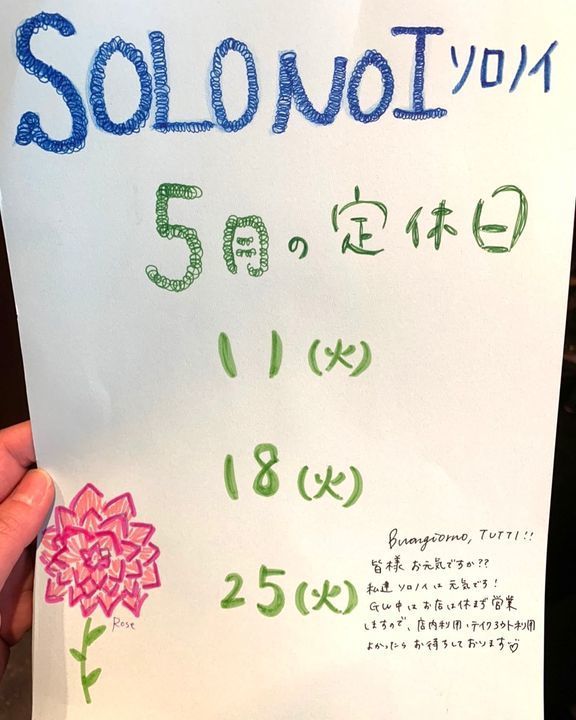 SOLO NOI ソロノイ
5月の定休日
11(火)
18(火)
25(火)
Rose
Buongiorno, TUTTI!!
皆様 お元気ですか??
私達 ソロノイは 元気です!
GW中は お店は 休まず 営業
しますので、店内利用・テイクアウト利用
よかったら お待ちしております♡